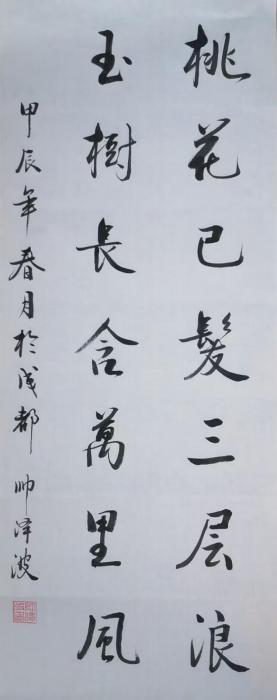 桃花已髮三层浪
玉樹長含萬里風
甲辰年春月於成都 帅泽波